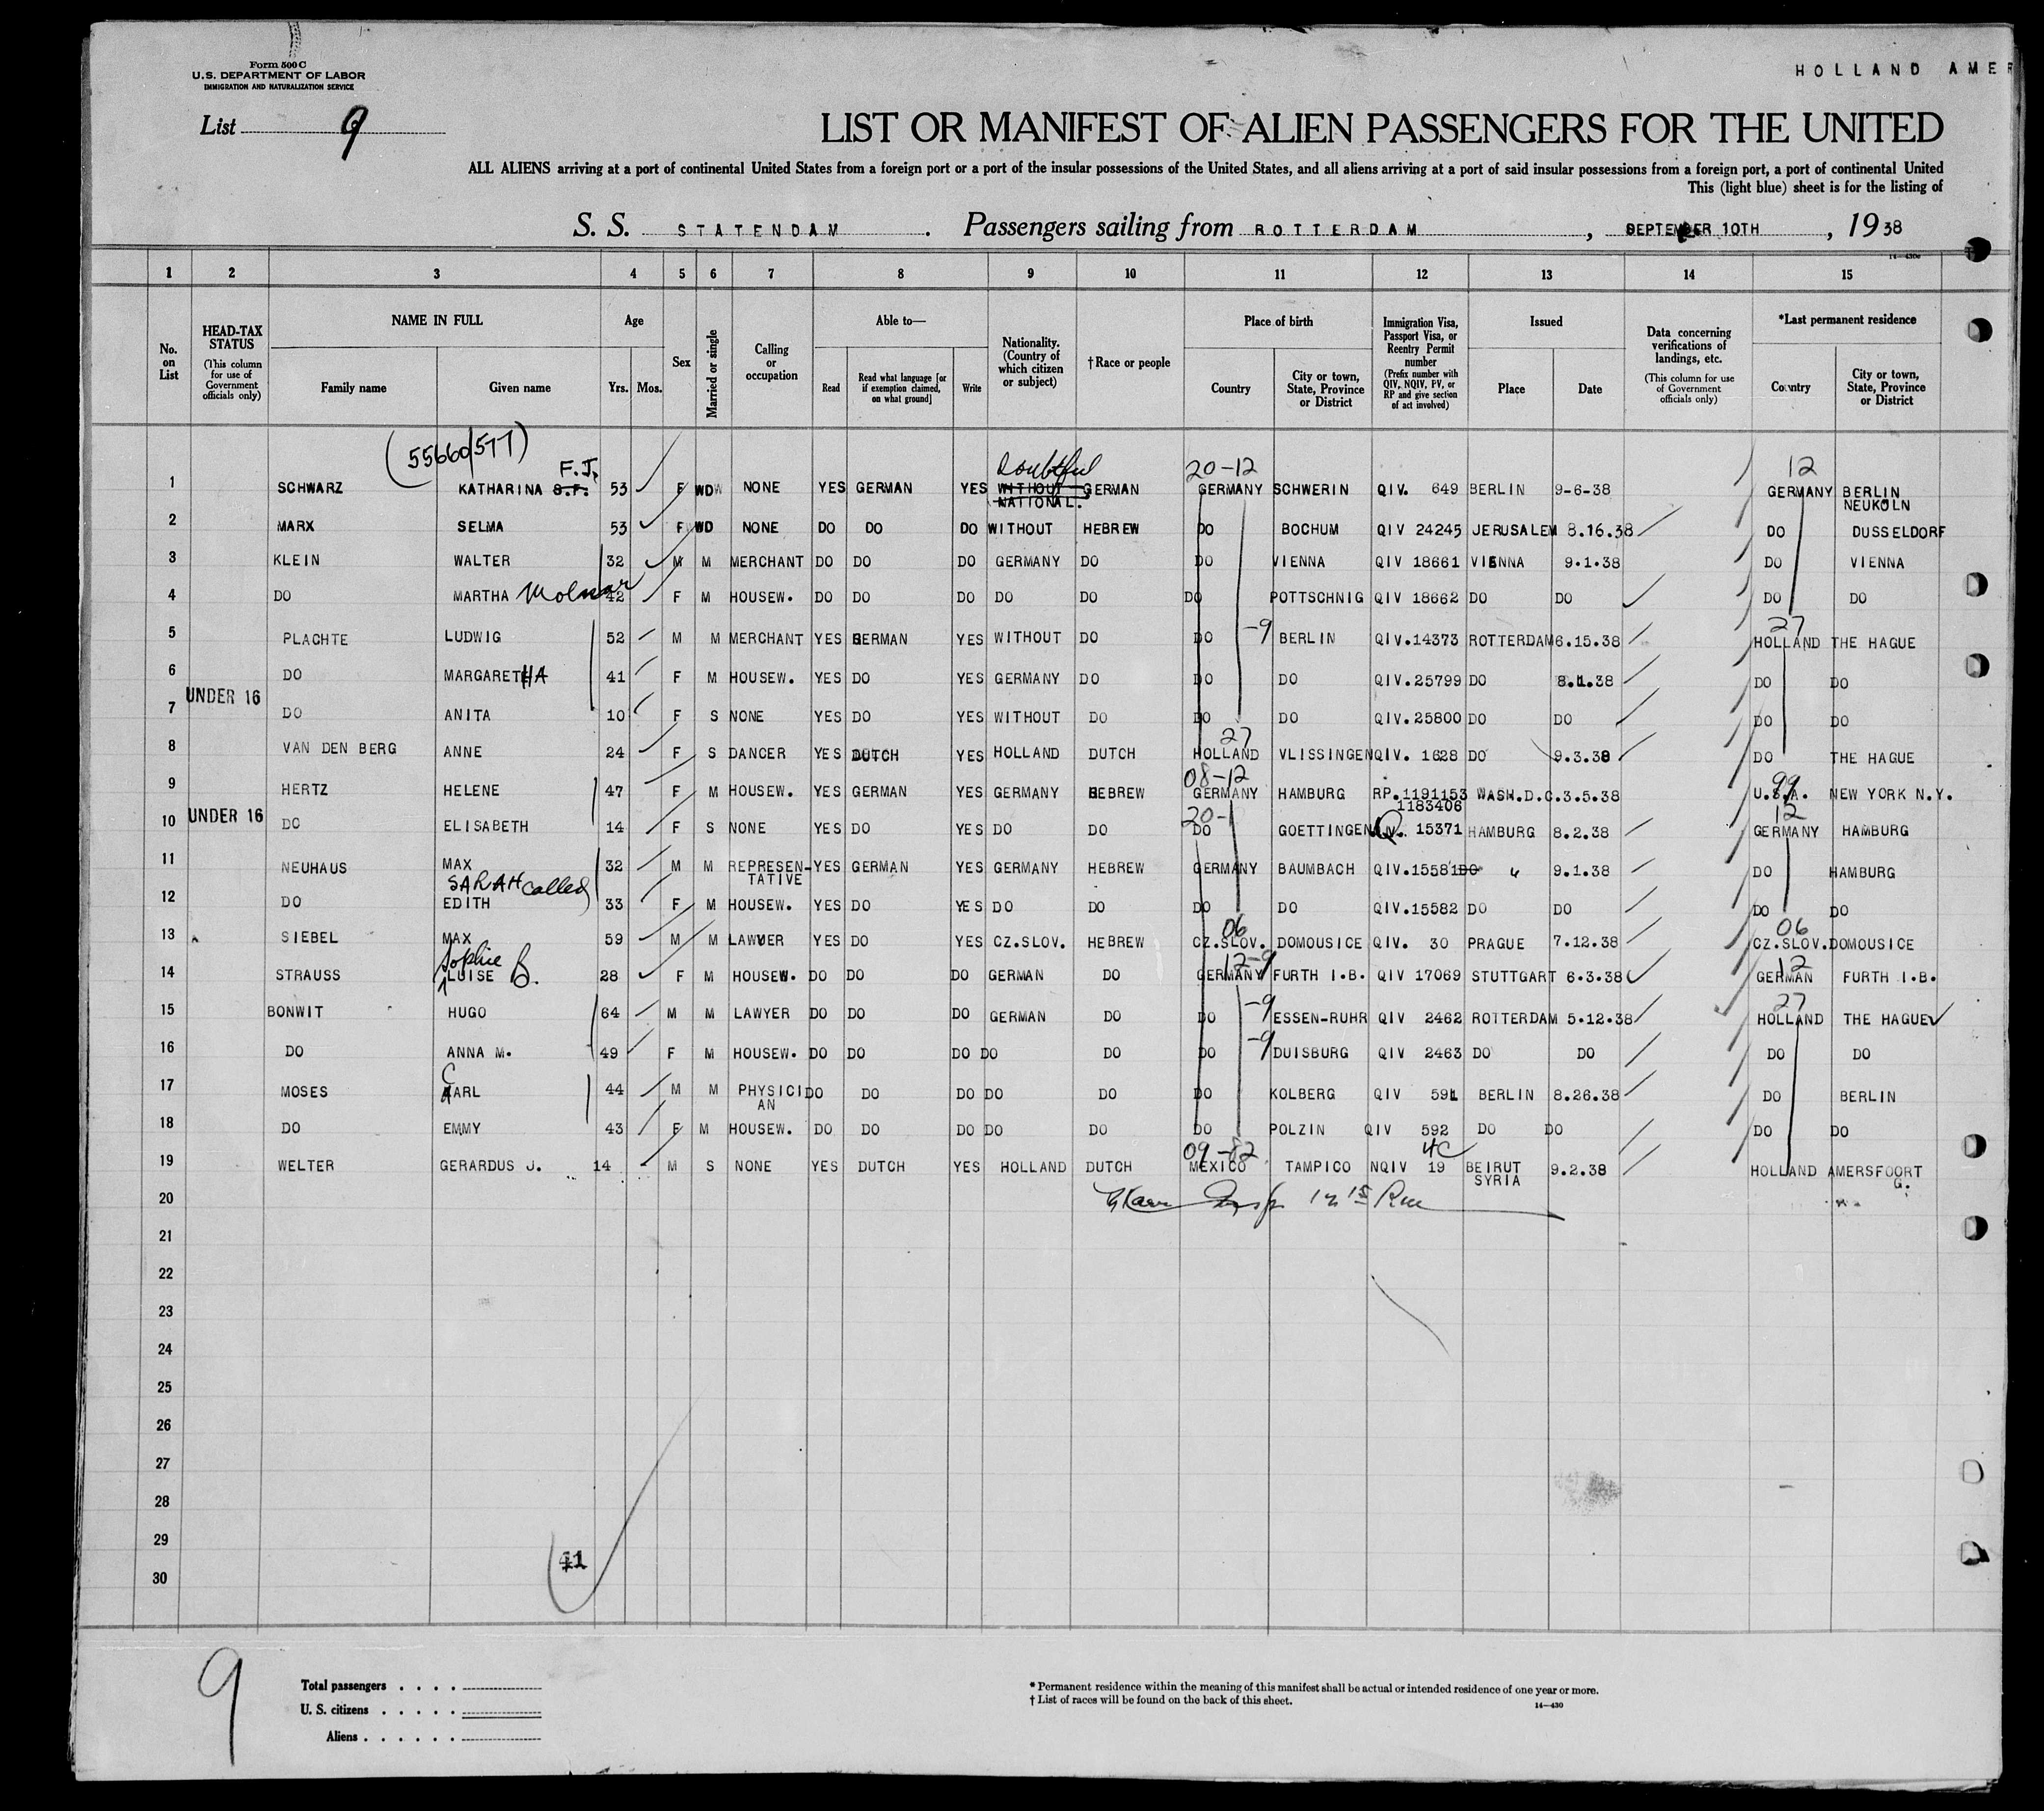 Form 500 C
U.S. DEPARTMENT OF LABOR
IMMIGRATION AND NATURALIZATION SERVICE
HOLLAND AMER
List 9
LIST OR MANIFEST OF ALIEN PASSENGERS FOR THE UNITED
ALL ALIENS arriving at a port of continental United States from a foreign port or a port of the insular possessions of the United States, and all aliens arriving at a port of said insular possessions from a foreign port, a port of continental United
This (light blue) sheet is for the listing of
S. S. STATENDAM . Passengers sailing from ROTTERDAM , SEPTEMBER 10TH , 19 38
14—430c
1 2 3 4 5 6 7 8 9 10 11 12 13 14 15
No. on List
HEAD-TAX STATUS (This column for use of Government officials only)
NAME IN FULL Family name Given name
Age Yrs. Mos.
Sex
Married or single
Calling or occupation
Able to— Read Read what language [or if exemption claimed, on what ground] Write
Nationality. (Country of which citizen or subject)
† Race or people
Place of birth Country City or town, State, Province or District
Immigration Visa, Passport Visa, or Reentry Permit number (Prefix number with QIV, NQIV, PV, or RP and give section of act involved)
Issued Place Date
Data concerning verifications of landings, etc. (This column for use of Government officials only)
*Last permanent residence Country City or town, State, Province or District
(55660/577)
F.J. Doubtful 20-12 12
1 SCHWARZ KATHARINA S.F. 53 F WD W NONE YES GERMAN YES WITHOUT NATIONAL. GERMAN GERMANY SCHWERIN QIV. 649 BERLIN 9-6-38 GERMANY BERLIN NEUKOLN
2 MARX SELMA 53 F WD NONE DO DO DO WITHOUT HEBREW DO BOCHUM QIV 24245 JERUSALEM 8.16.38 DO DUSSELDORF
3 KLEIN WALTER 32 M M MERCHANT DO DO DO GERMANY DO DO VIENNA QIV 18661 VIENNA 9.1.38 DO VIENNA
4 DO MARTHA Molnar 42 F M HOUSEW. DO DO DO DO DO DO POTTSCHNIG QIV 18662 DO DO DO DO
-9 27
5 PLACHTE LUDWIG 52 M M MERCHANT YES GERMAN YES WITHOUT DO DO BERLIN QIV.14373 ROTTERDAM 6.15.38 HOLLAND THE HAGUE
6 DO MARGARETHA 41 F M HOUSEW. YES DO YES GERMANY DO DO DO QIV.25799 DO 8.1.38 DO DO
UNDER 16
7 DO ANITA 10 F S NONE YES DO YES WITHOUT DO DO DO QIV.25800 DO DO DO DO
27
8 VAN DEN BERG ANNE 24 F S DANCER YES DUTCH YES HOLLAND DUTCH HOLLAND VLISSINGEN QIV. 1628 DO 9.3.38 DO THE HAGUE
08-12 99
9 HERTZ HELENE 47 F M HOUSEW. YES GERMAN YES GERMANY HEBREW GERMANY HAMBURG RP.1191153 1183406 WASH.D.C. 3.5.38 U.S.A. NEW YORK N.Y.
UNDER 16 20- 12
10 DO ELISABETH 14 F S NONE YES DO YES DO DO DO GOETTINGEN QIV. 15371 HAMBURG 8.2.38 GERMANY HAMBURG
11 NEUHAUS MAX 32 M M REPRESEN-TATIVE YES GERMAN YES GERMANY HEBREW GERMANY BAUMBACH QIV.15581 DO " 9.1.38 DO HAMBURG
SARAH called
12 DO EDITH 33 F M HOUSEW. YES DO YES DO DO DO DO QIV.15582 DO DO DO DO
06 06
13 SIEBEL MAX 59 M M LAWYER YES DO YES CZ.SLOV. HEBREW CZ.SLOV. DOMOUSICE QIV. 30 PRAGUE 7.12.38 CZ.SLOV. DOMOUSICE
Sophie 12-9 12
14 STRAUSS LUISE B. 28 F M HOUSEW. DO DO DO GERMAN DO GERMANY FURTH I.B. QIV 17069 STUTTGART 6.3.38 GERMAN FURTH I.B.
-9 27
15 BONWIT HUGO 64 M M LAWYER DO DO DO GERMAN DO DO ESSEN-RUHR QIV 2462 ROTTERDAM 5.12.38 HOLLAND THE HAGUE
-9
16 DO ANNA M. 49 F M HOUSEW. DO DO DO DO DO DO DUISBURG QIV 2463 DO DO DO DO
17 MOSES CARL 44 M M PHYSICIAN DO DO DO DO DO DO KOLBERG QIV 591 BERLIN 8.26.38 DO BERLIN
18 DO EMMY 43 F M HOUSEW. DO DO DO DO DO DO POLZIN QIV 592 DO DO DO DO
09-82 4C
19 WELTER GERARDUS J. 14 M S NONE YES DUTCH YES HOLLAND DUTCH MEXICO TAMPICO NQIV 19 BEIRUT SYRIA 9.2.38 HOLLAND AMERSFOORT G.
20
21
22
23
24
25
26
27
28
29
30
41
9
Total passengers . . . .
U. S. citizens . . . . .
Aliens . . . . . .
* Permanent residence within the meaning of this manifest shall be actual or intended residence of one year or more.
† List of races will be found on the back of this sheet.
14—430